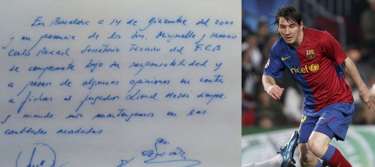 En Barcelona a 14 de Diciembre del 2000
y en presencia de los Srs. Minguella y Horacio
Carles Rexach Secretario Técnico del F.C.B
se compromete bajo su responsabilidad y
a pesar de algunas opiniones en contra
a fichar el jugador Lionel Messi siempre
y cuando nos mantengamos en las
cantidades acordadas
unicef